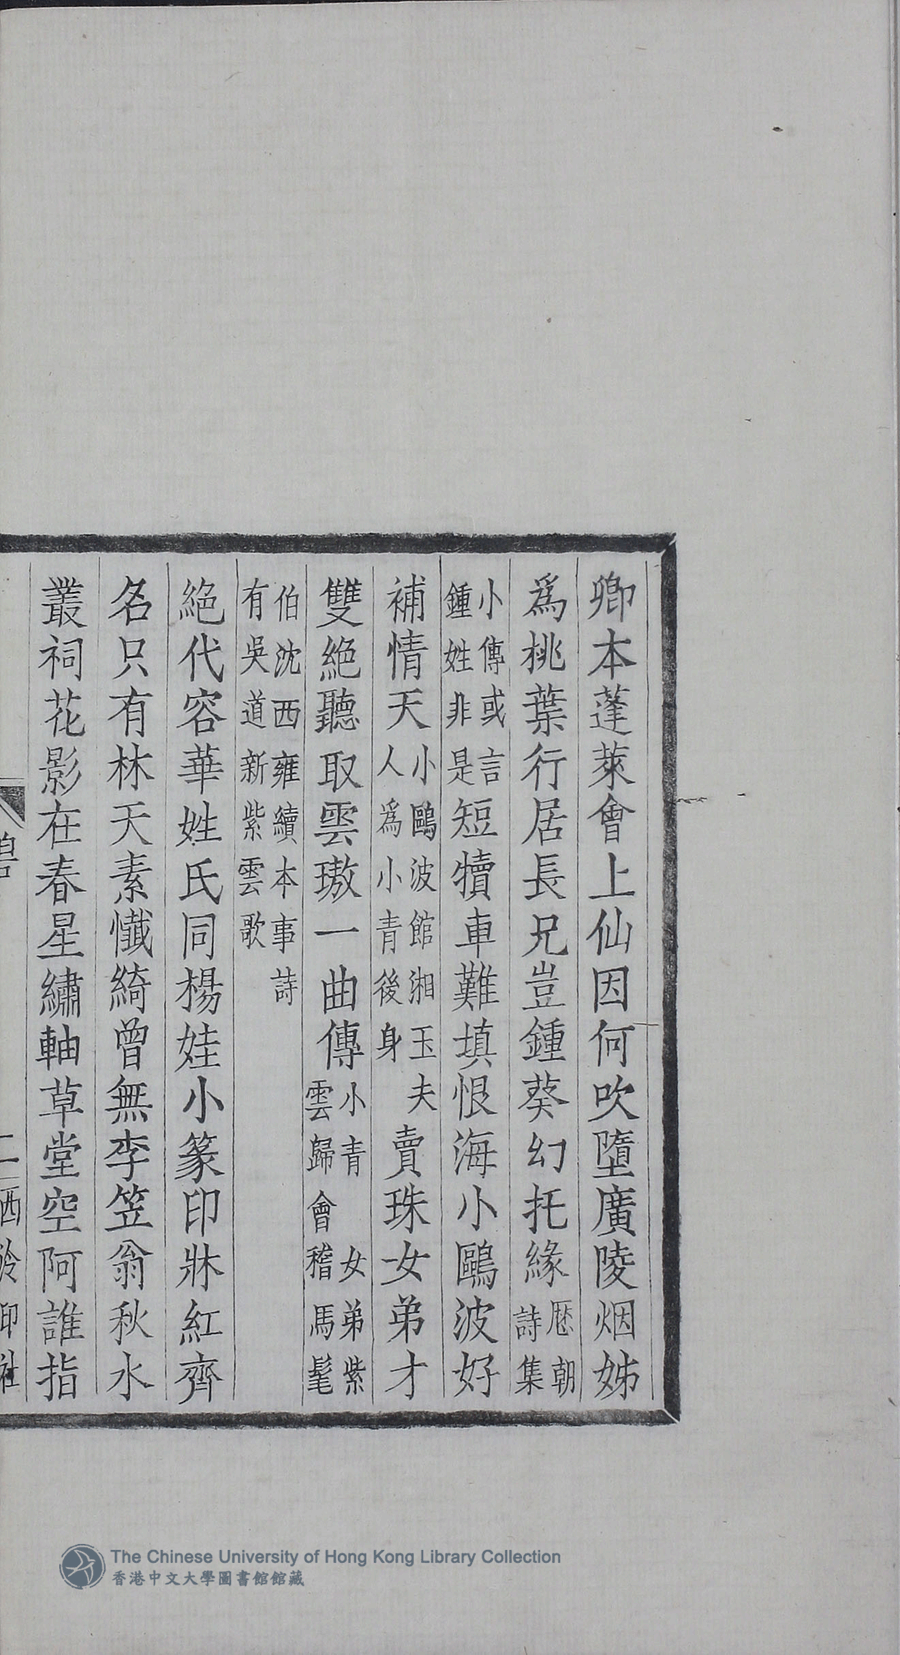 卿本蓬萊會上仙因何吹墮廣陵烟姊
爲桃葉行居長兄豈鍾葵幻托緣歷朝詩集
小傳或言鍾姓非是短犢車難填恨海小鷗波好
補情天小鷗波館湘玉夫人爲小青後身賣珠女弟才
雙絕聽取雲璈一曲傳小青女弟紫雲歸會稽馬髦
伯沈西雍續本事詩有吳道新紫雲歌
絕代容華姓氏同楊娃小篆印牀紅齊
名只有林天素懺綺曾無李笠翁秋水
叢祠花影在春星繡軸草堂空阿誰指
二西泠印社
The Chinese University of Hong Kong Library Collection
香港中文大學圖書館館藏